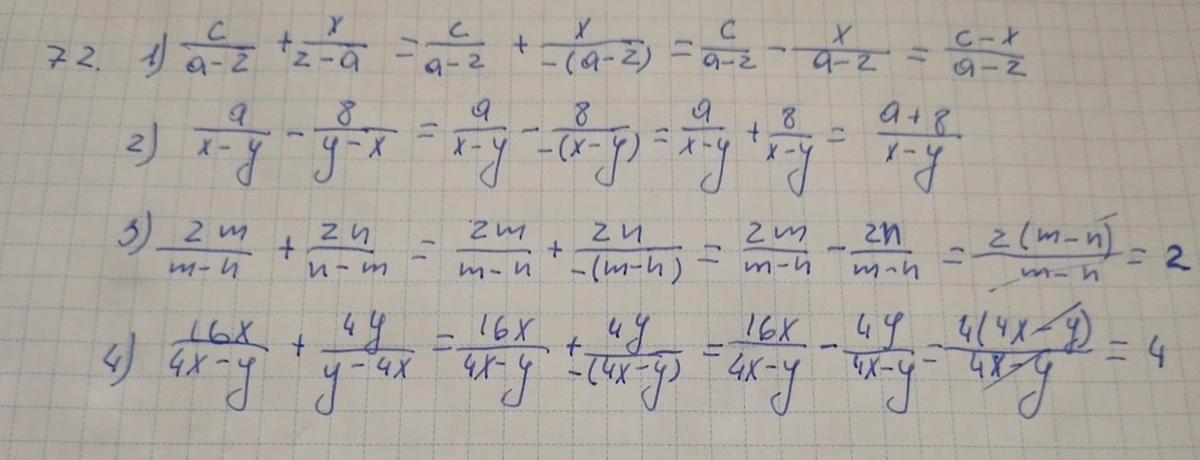 72. 1) c/(a-z) + x/(z-a) = c/(a-z) + x/(-(a-z)) = c/(a-z) - x/(a-z) = (c-x)/(a-z)
2) a/(x-y) - 8/(y-x) = a/(x-y) - 8/(-(x-y)) = a/(x-y) + 8/(x-y) = (a+8)/(x-y)
3) 2m/(m-n) + 2n/(n-m) = 2m/(m-n) + 2n/(-(m-n)) = 2m/(m-n) - 2n/(m-n) = 2(m-n)/(m-n) = 2
4) 16x/(4x-y) + 4y/(y-4x) = 16x/(4x-y) + 4y/(-(4x-y)) = 16x/(4x-y) - 4y/(4x-y) = 4(4x-y)/(4x-y) = 4